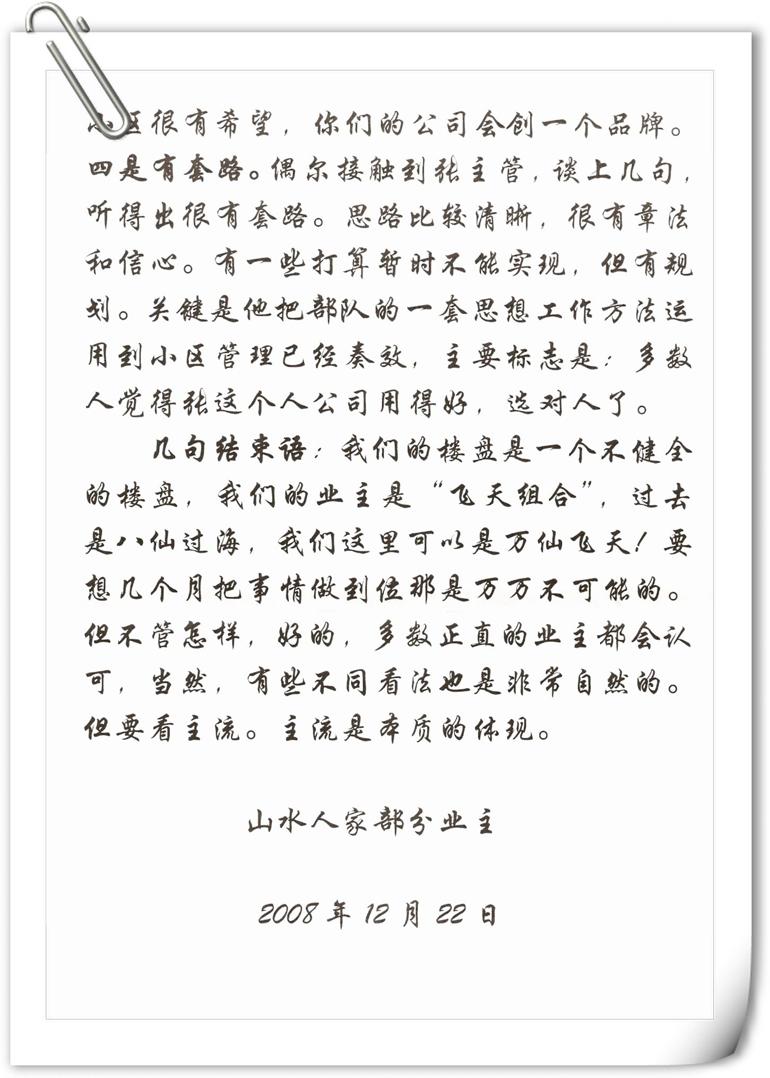 小区很有希望，你们的公司会创一个品牌。
四是有套路。偶尔接触到张主管，谈上几句，
听得出很有套路。思路比较清晰，很有章法
和信心。有一些打算暂时不能实现，但有规
划。关键是他把部队的一套思想工作方法运
用到小区管理已经奏效，主要标志是：多数
人觉得张这个人公司用得好，选对人了。
几句结束语：我们的楼盘是一个不健全
的楼盘，我们的业主是“飞天组合”，过去
是八仙过海，我们这里可以是万仙飞天！要
想几个月把事情做到位那是万万不可能的。
但不管怎样，好的，多数正直的业主都会认
可，当然，有些不同看法也是非常自然的。
但要看主流。主流是本质的体现。
山水人家部分业主
2008年12月22日